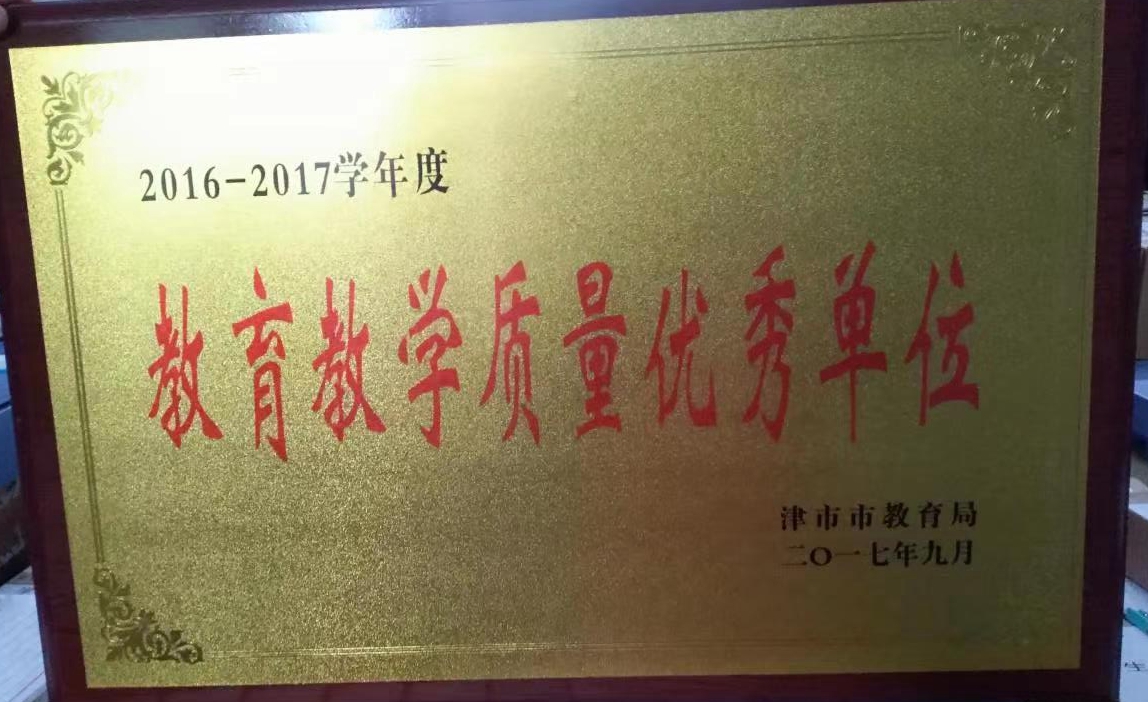 2016-2017学年度
教育教学质量优秀单位
津市市教育局
二〇一七年九月
生